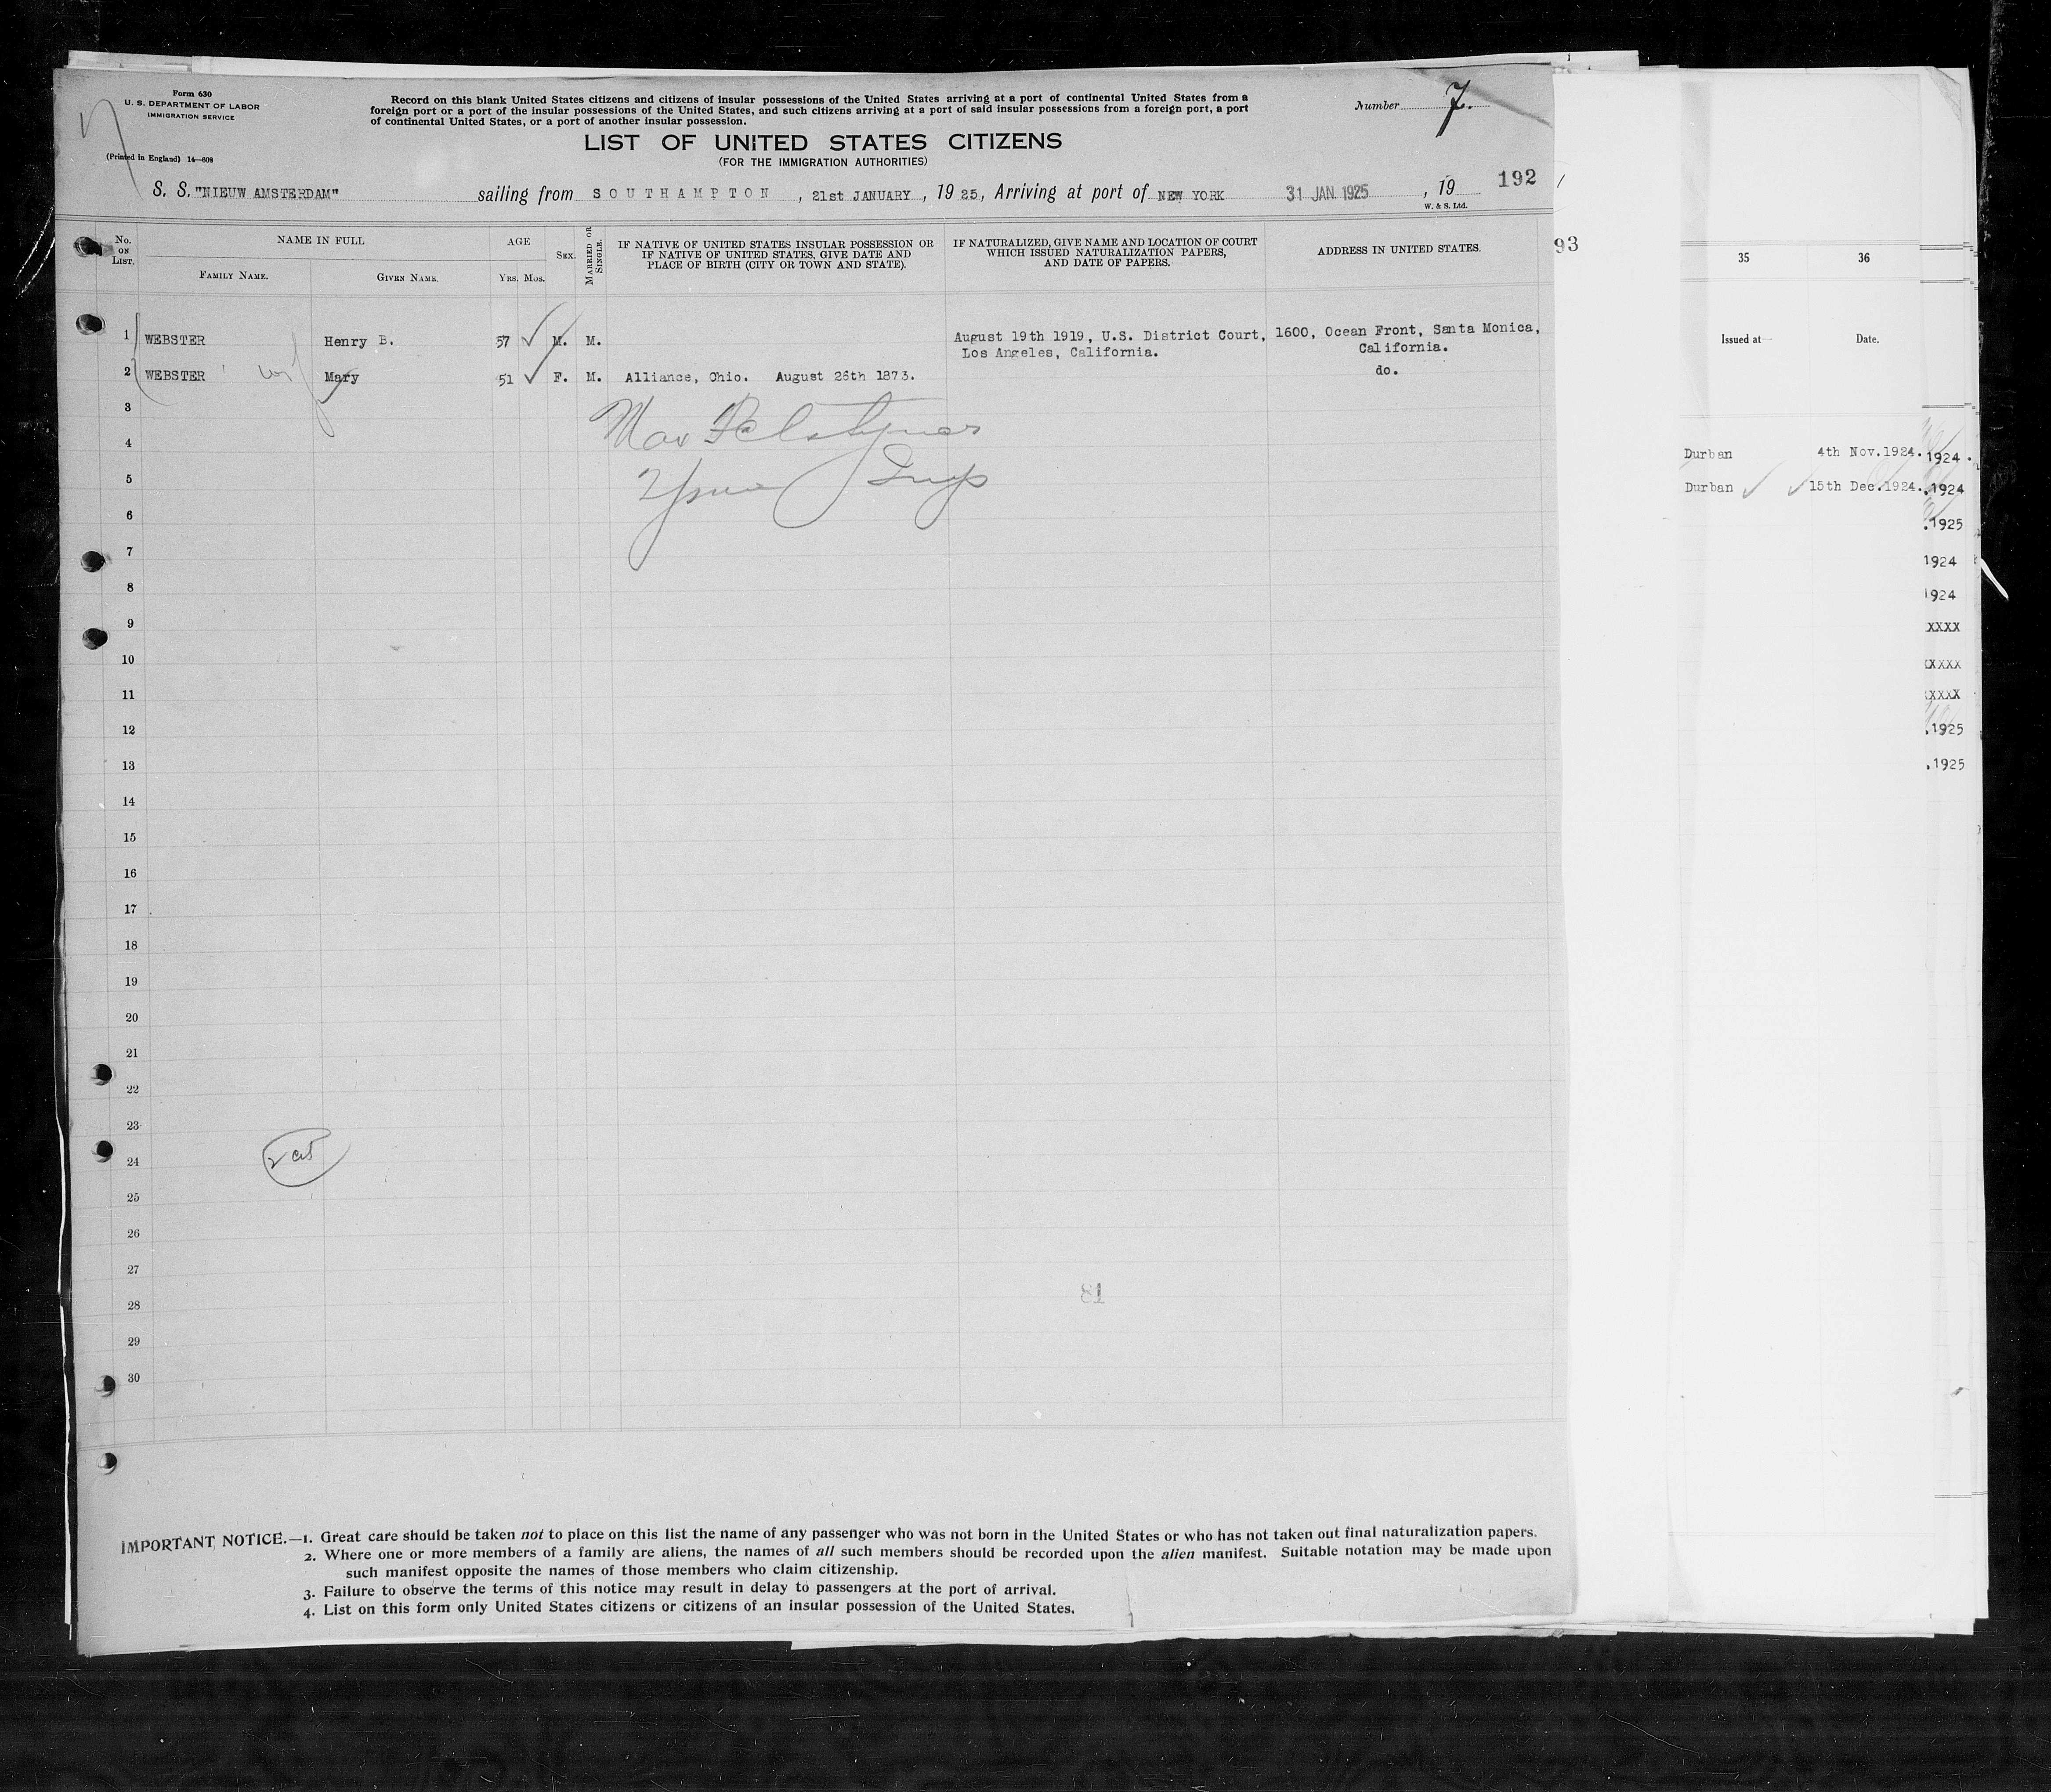 Form 630
U. S. DEPARTMENT OF LABOR
IMMIGRATION SERVICE
(Printed in England) 14—608
Record on this blank United States citizens and citizens of insular possessions of the United States arriving at a port of continental United States from a
foreign port or a port of the insular possessions of the United States, and such citizens arriving at a port of said insular possessions from a foreign port, a port
of continental United States, or a port of another insular possession.
Number 7.
LIST OF UNITED STATES CITIZENS
(FOR THE IMMIGRATION AUTHORITIES)
S. S. "NIEUW AMSTERDAM" sailing from SOUTHAMPTON, 21st JANUARY, 1925, Arriving at port of NEW YORK 31 JAN. 1925, 19 192
W. & S. Ltd.
No. ON LIST. NAME IN FULL AGE SEX. MARRIED OR SINGLE. IF NATIVE OF UNITED STATES INSULAR POSSESSION OR IF NATIVE OF UNITED STATES, GIVE DATE AND PLACE OF BIRTH (CITY OR TOWN AND STATE). IF NATURALIZED, GIVE NAME AND LOCATION OF COURT WHICH ISSUED NATURALIZATION PAPERS, AND DATE OF PAPERS. ADDRESS IN UNITED STATES.
FAMILY NAME. GIVEN NAME. YRS. MOS.
1 WEBSTER Henry B. 57 M. M. August 19th 1919, U.S. District Court, 1600, Ocean Front, Santa Monica,
Los Angeles, California. California.
2 WEBSTER wif Mary 51 F. M. Alliance, Ohio. August 26th 1873. do.
3
4
5
6
7
8
9
10
11
12
13
14
15
16
17
18
19
20
21
22
23
24
25
26
27
28
29
30
81
IMPORTANT NOTICE.—1. Great care should be taken not to place on this list the name of any passenger who was not born in the United States or who has not taken out final naturalization papers.
2. Where one or more members of a family are aliens, the names of all such members should be recorded upon the alien manifest. Suitable notation may be made upon
such manifest opposite the names of those members who claim citizenship.
3. Failure to observe the terms of this notice may result in delay to passengers at the port of arrival.
4. List on this form only United States citizens or citizens of an insular possession of the United States.
93
35 36
Issued at— Date.
Durban 4th Nov.1924.
Durban 15th Dec.1924.
1924.
.1924
.1925
1924
1924
XXXX
XXXXX
XXXXX
.1925
.1925